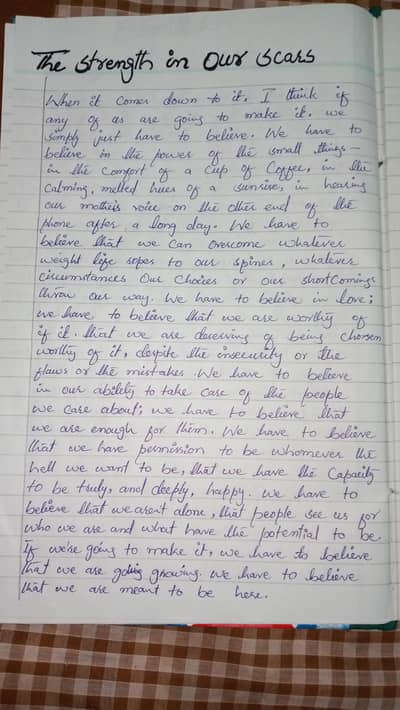 The strength in Our Scars
When it comes down to it, I think if
any of us are going to make it, we
simply just have to believe. We have to
believe in the power of the small things —
in the comfort of a cup of Coffee, in the
Calming, melted hues of a sunrise, in hearing
our mother's voice on the other end of the
phone after a long day. We have to
believe that we can overcome whatever
weight life ropes to our spines, whatever
circumstances Our Choices or our shortcomings
throw our way. We have to believe in love;
we have to believe that we are worthy of
if it. that we are deserving of being chosen
worthy of it, despite the insecurity or the
flaws or the mistakes. We have to believe
in our ability to take care of the people
we care about; we have to believe that
we are enough for them. We have to believe
that we have permission to be whomever the
hell we want to be, that we have the Capacity
to be truly, and deeply, happy. we have to
believe that we aren't alone, that people see us for
who we are and what have the potential to be.
If we're going to make it, we have to believe
that we are growing. we have to believe
that we are meant to be here.